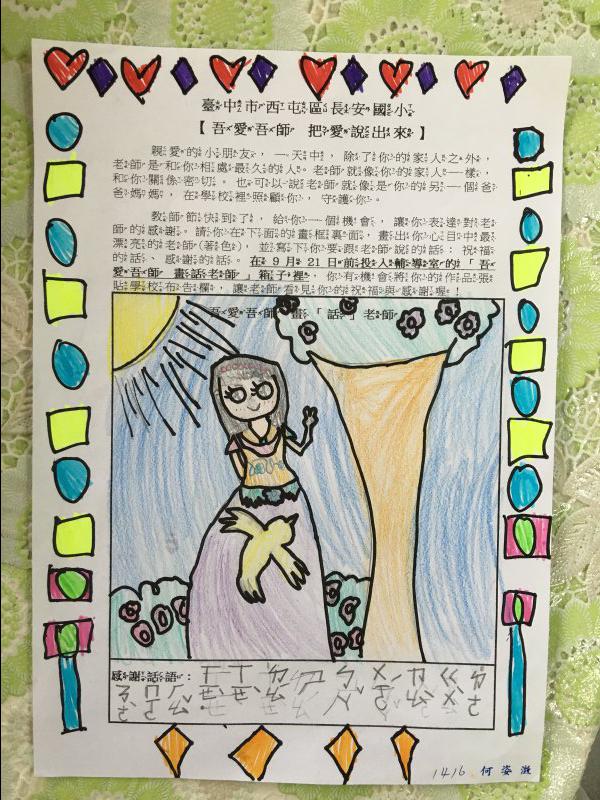 臺中市西屯區長安國小
【吾愛吾師 把愛說出來】
親愛的小朋友，一天中，除了你的家人之外，
老師是和你相處最久的人。老師就像你的家人一樣，
和你關係密切。也可以說老師就像是你的另一個爸
爸媽媽，在學校裡照顧你，守護你。
教師節快到了，給你一個機會，讓你表達對老
師的感謝。請你在下面的畫框裏面，畫出你心目中最
漂亮的老師(著色)，並寫下你要跟老師說的話：祝福
的話、感謝的話。在9月21日前投入輔導室的「吾
愛吾師 畫話老師」箱子裡，你有機會將你的作品張
貼學校布告欄，讓老師看見你的祝福與感謝喔！
吾愛吾師 畫「話」老師
感謝話語：
1416 何姿漩